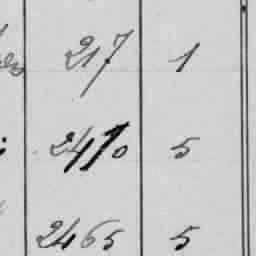 217 1
2410 5
2465 5